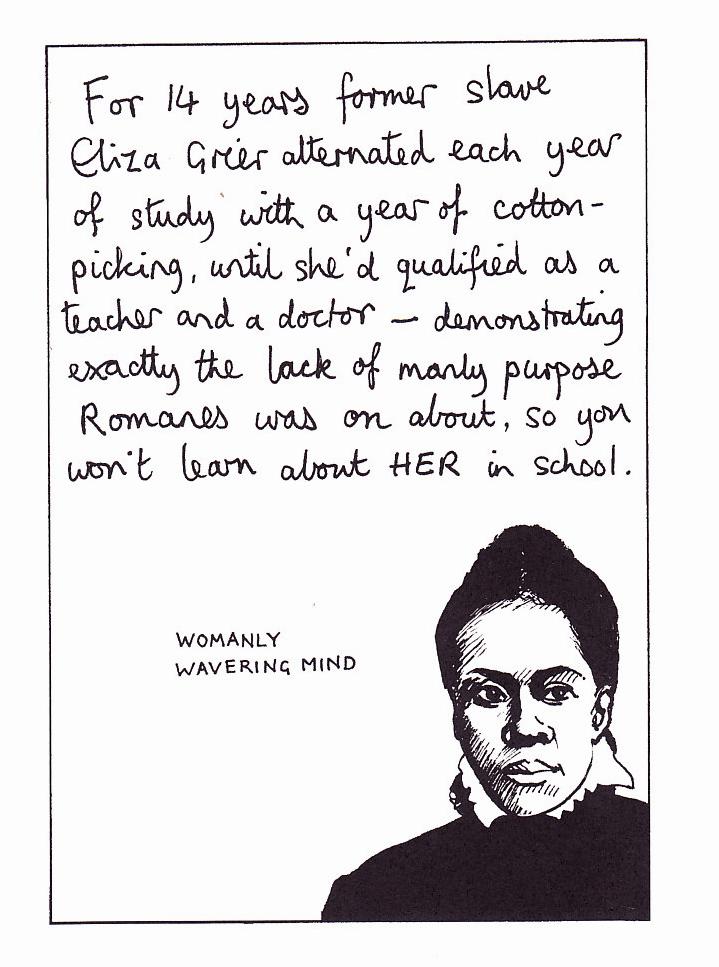 For 14 years former slave
Eliza Grier alternated each year
of study with a year of cotton-
picking, until she'd qualified as a
teacher and a doctor — demonstrating
exactly the lack of manly purpose
Romanes was on about, so you
won't learn about HER in school.
WOMANLY
WAVERING MIND